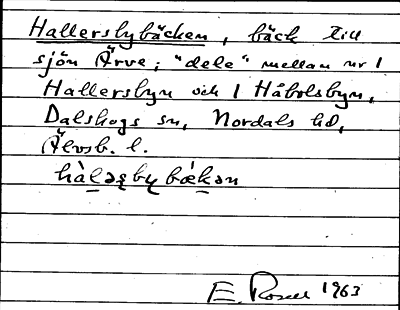 Hallersbybäcken, bäck till
sjön Ärve; "dele" mellan nr 1
Hallersbyn och 1 Håbolsbyn,
Dalskogs sn, Nordals hd,
Älvsb. l.
hàləʂby bækən
E. Rosell 1963